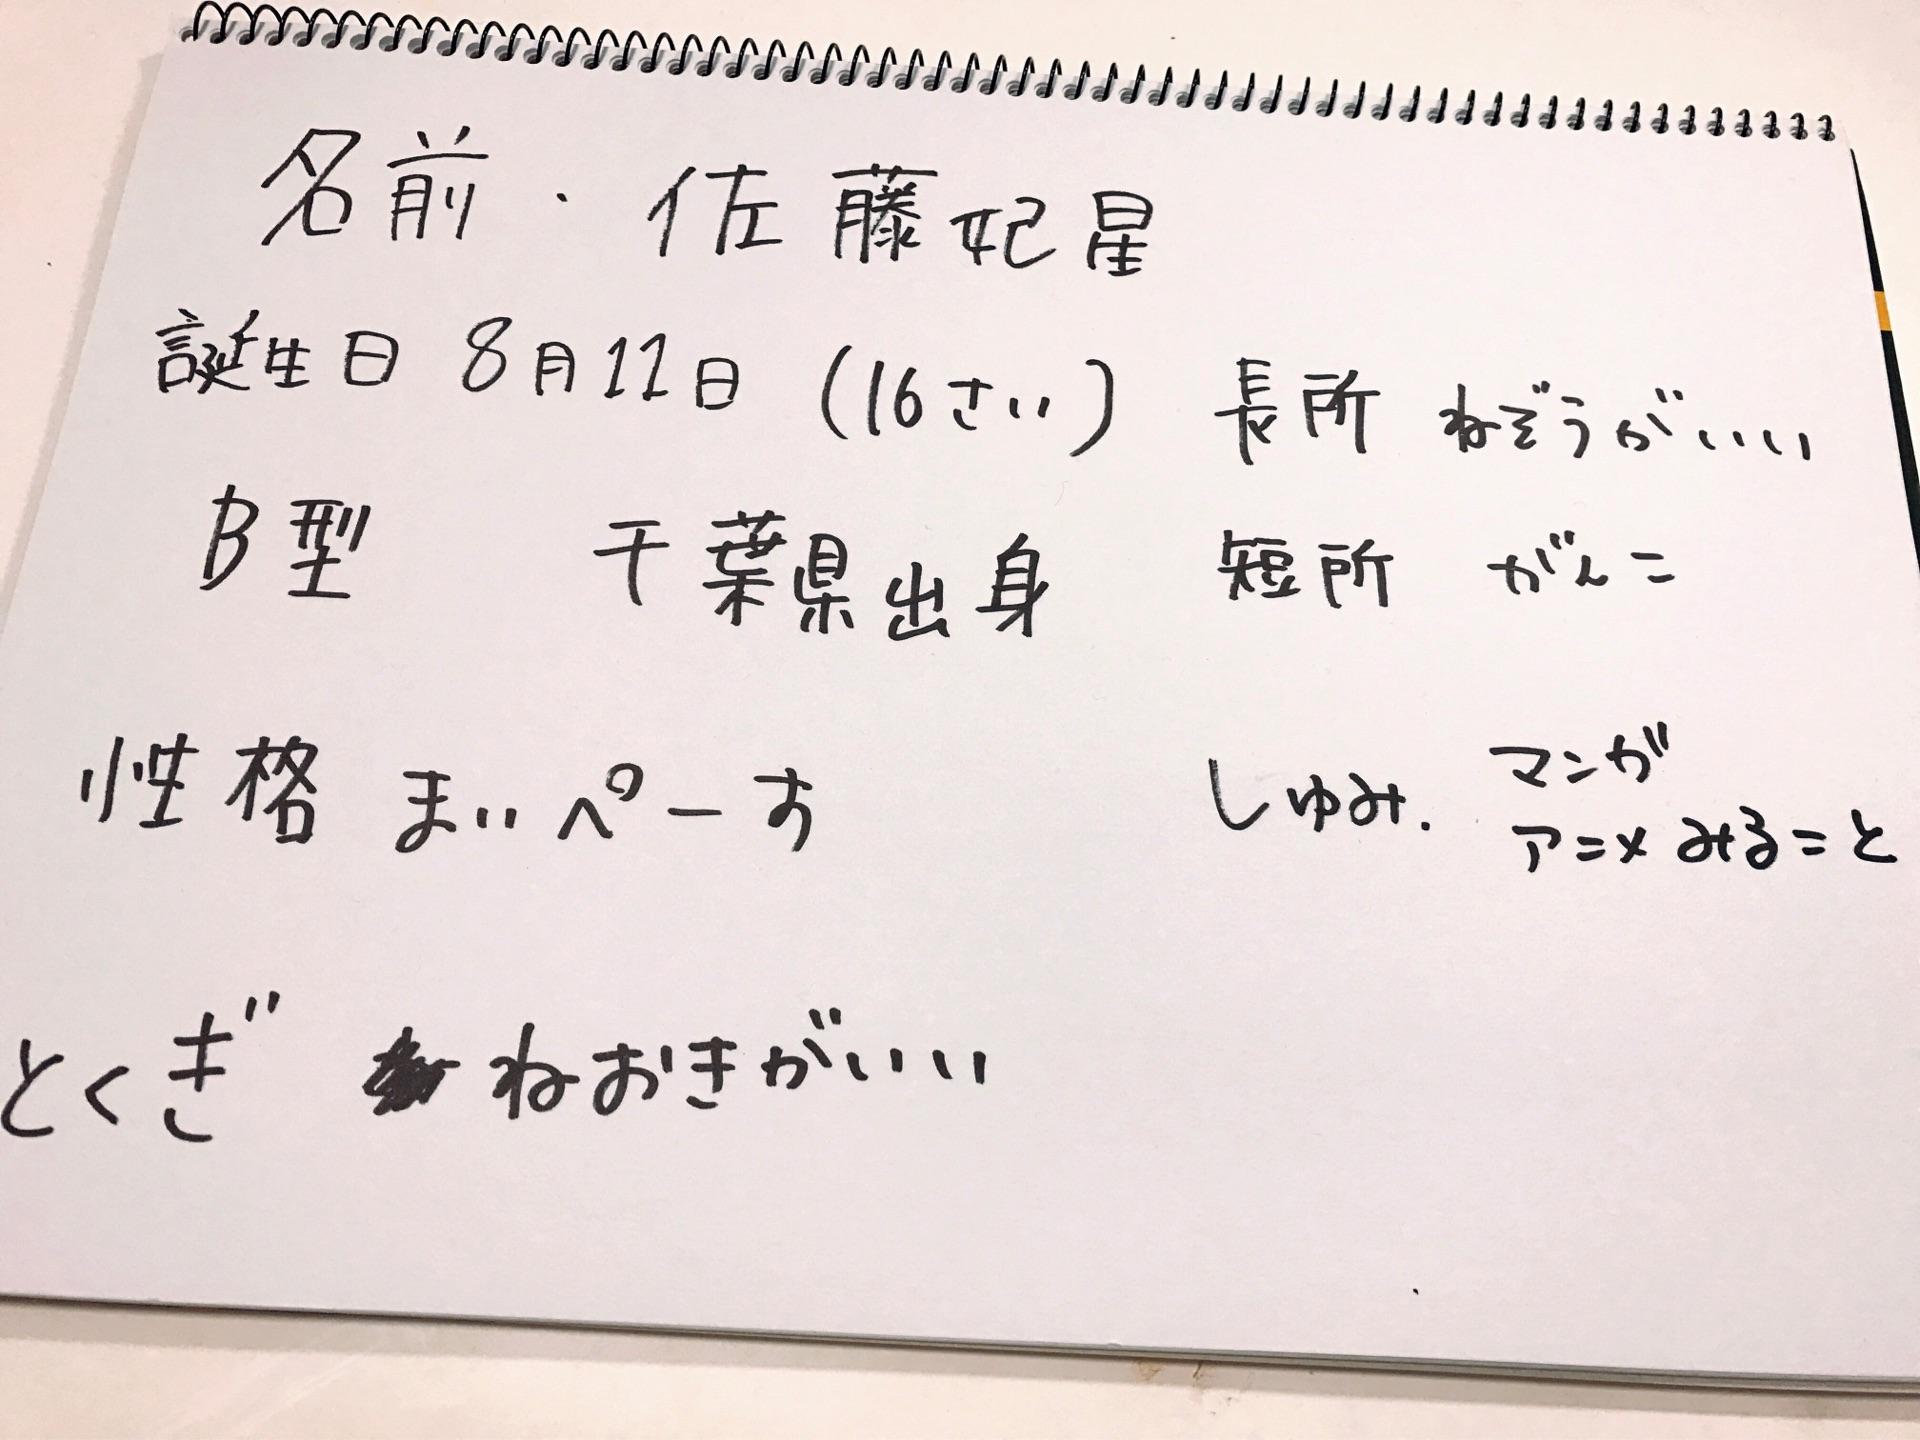 名前・佐藤妃星
誕生日 8月11日 (16さい)
B型 千葉県出身
性格 まいぺーす
とくぎ ねおきがいい
長所 ねぞうがいい
短所 がんこ
しゅみ. マンガ
アニメみること